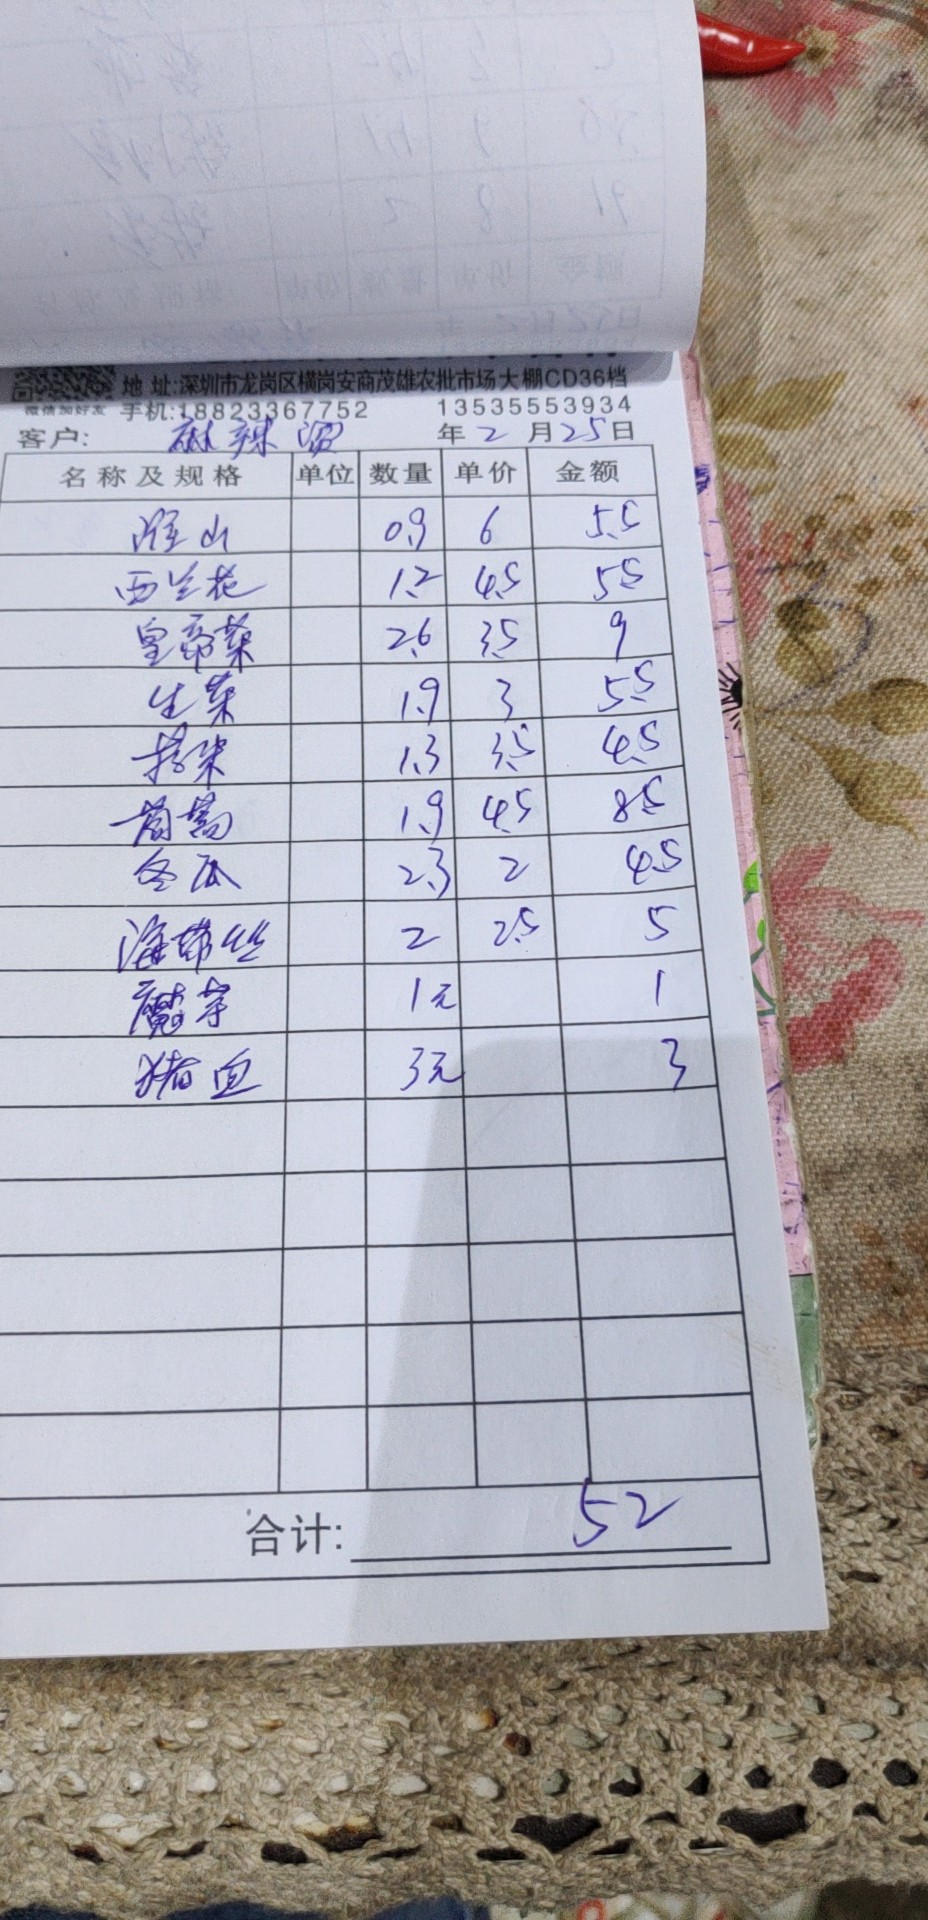 地 址:深圳市龙岗区横岗安商茂雄农批市场大棚CD36档
微信加好友 手机:18823367752 13535553934
客户: 麻辣烫 年 2 月 25 日
名称及规格 单位 数量 单价 金额
淮山 0.9 6 5.5
西兰花 1.2 4.5 5.5
皇帝菜 2.6 3.5 9
生菜 1.9 3 5.5
1.3 3.5 4.5
茼蒿 1.9 4.5 8.5
冬瓜 2.3 2 4.5
海带丝 2 2.5 5
魔芋 1元 1
猪血 3元 3
合计: 52